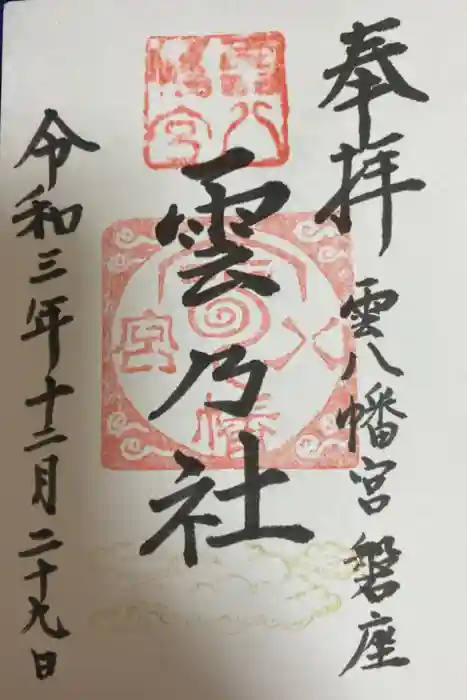 奉拝
雲八幡宮 磐座
雲八幡宮
雲乃社
雲八幡宮
令和三年十二月二十九日